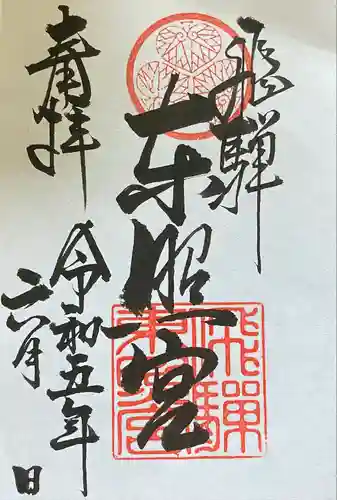 飛騨
東照宮
奉拝
令和五年
六月
日
飛騨東照宮